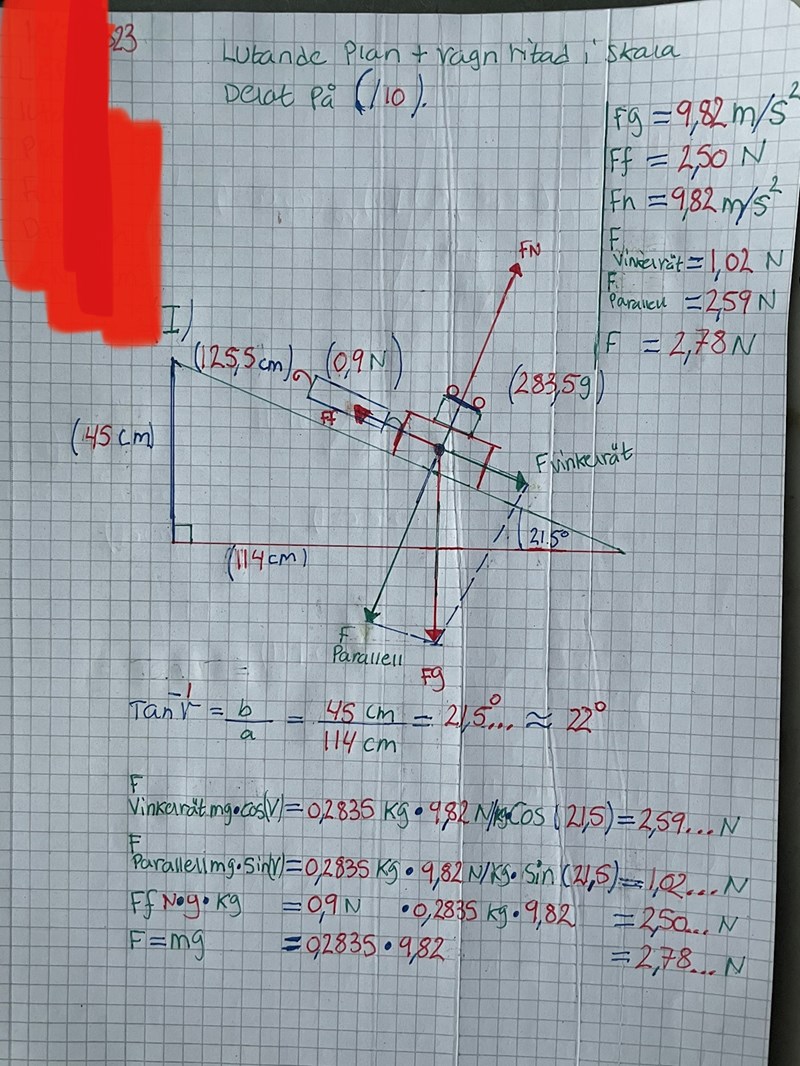 23
Lutande Plan + vagn ritad i skala
Delat På (/10).
Fg = 9,82 m/s²
Ff = 2,50 N
Fn = 9,82 m/s²
F
Vinkelrät = 1,02 N
F
Parallell = 2,59 N
F = 2,78 N
I)
FN
(125,5 cm)
(0,9 N)
(283,5 g)
Ff
(45 cm)
F vinkelrät
21.5°
(114 cm)
F
Parallell
Fg
Tan⁻¹ V = b/a = 45 cm/114 cm = 21,5...° ≈ 22°
F
Vinkelrät mg•cos(V) = 0,2835 Kg • 9,82 N/kg Cos (21,5) = 2,59... N
F
Parallell mg•sin(V) = 0,2835 Kg • 9,82 N/kg • Sin (21,5) = 1,02... N
Ff N•g•kg = 0,9 N • 0,2835 kg • 9,82 = 2,50... N
F = mg = 0,2835 • 9,82 = 2,78... N